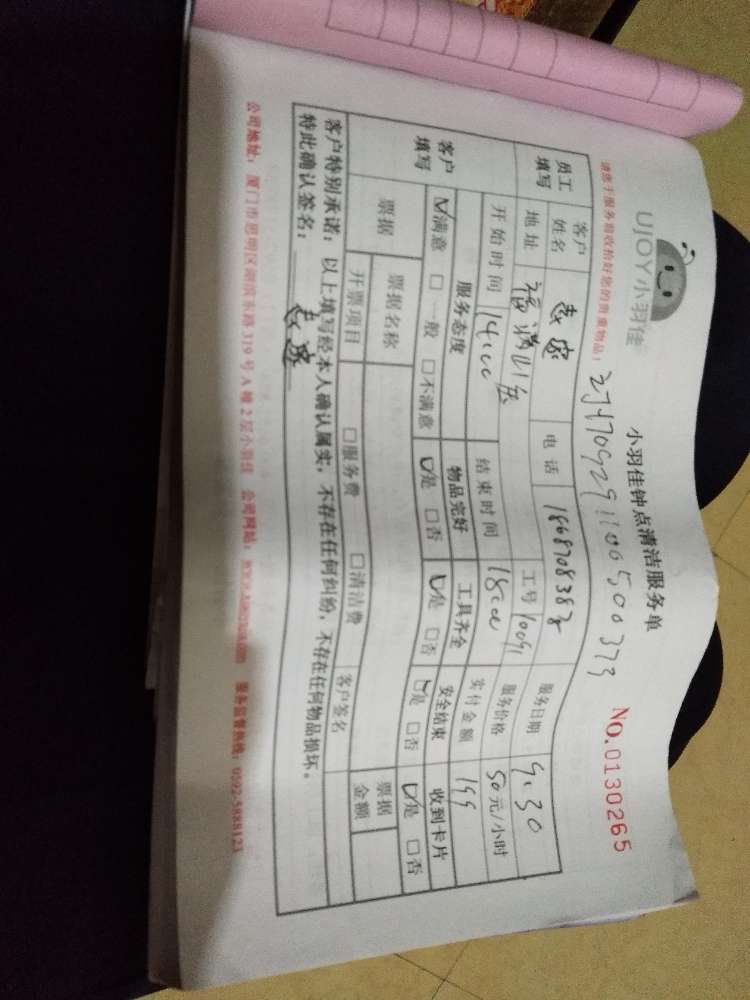 UJOY小羽佳
小羽佳钟点清洁服务单
NO.0130265
请您于服务前收拾好您的贵重物品！
员工填写 客户姓名 电话 服务日期 9.30
地址 工号 10091 服务价格 50元/小时
开始时间 14:00 结束时间 18:00 实付金额 199
客户填写 服务态度 物品完好 工具齐全 安全结束 收到卡片
☑满意 □一般 □不满意 ☑是 □否 ☑是 □否 ☑是 □否 ☑是 □否
票据 票据名称 票据金额
开票项目 □服务费 □清洁费 客户签名
客户特别承诺：以上填写经本人确认属实，不存在任何纠纷，不存在任何物品损坏。
特此确认签名：
公司地址：厦门市思明区湖滨东路319号A幢2层小羽佳 公司网站： 服务监督热线：0592-5888123